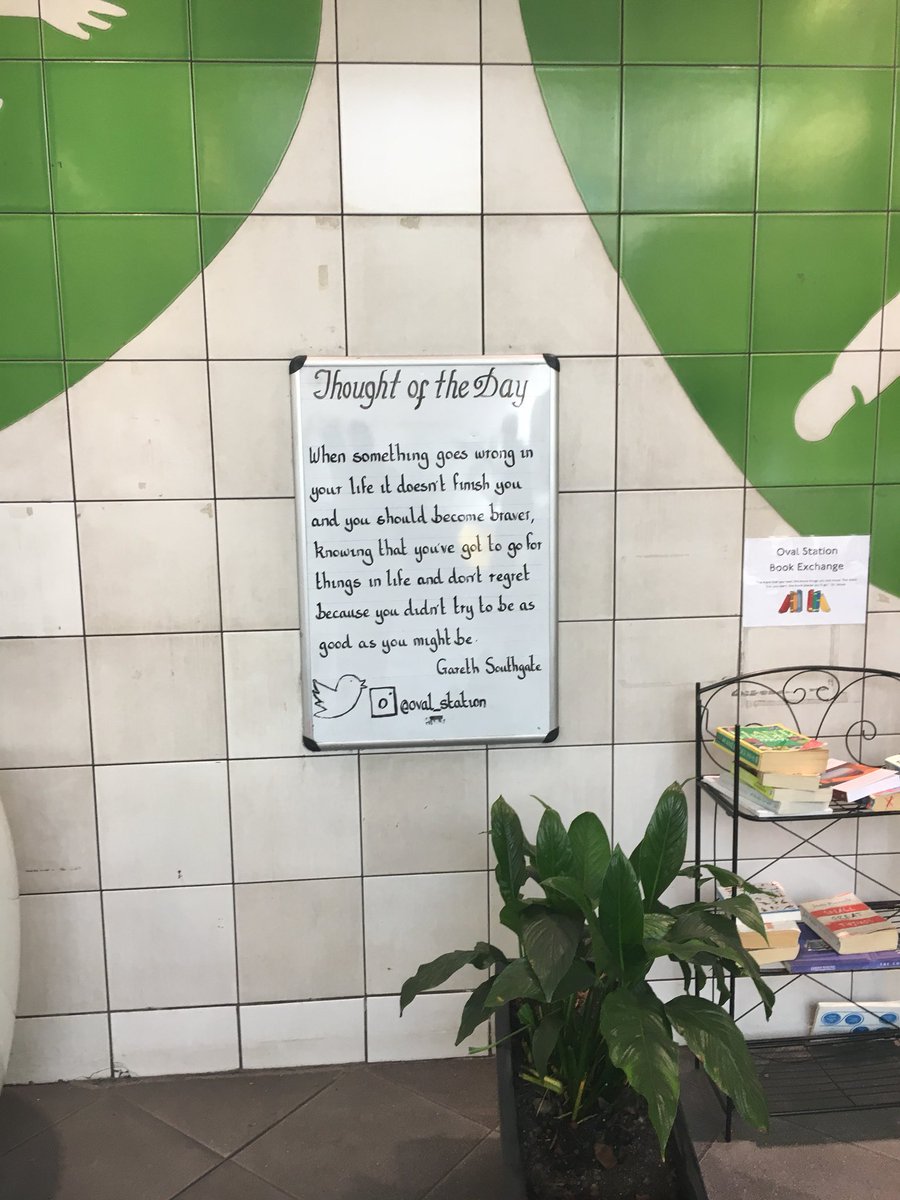 Thought of the Day
When something goes wrong in
your life it doesn't finish you
and you should become braver,
knowing that you've got to go for
things in life and don't regret
because you didn't try to be as
good as you might be.
Gareth Southgate
@oval_station
Oval Station
Book Exchange
SMALL
GREAT
THINGS